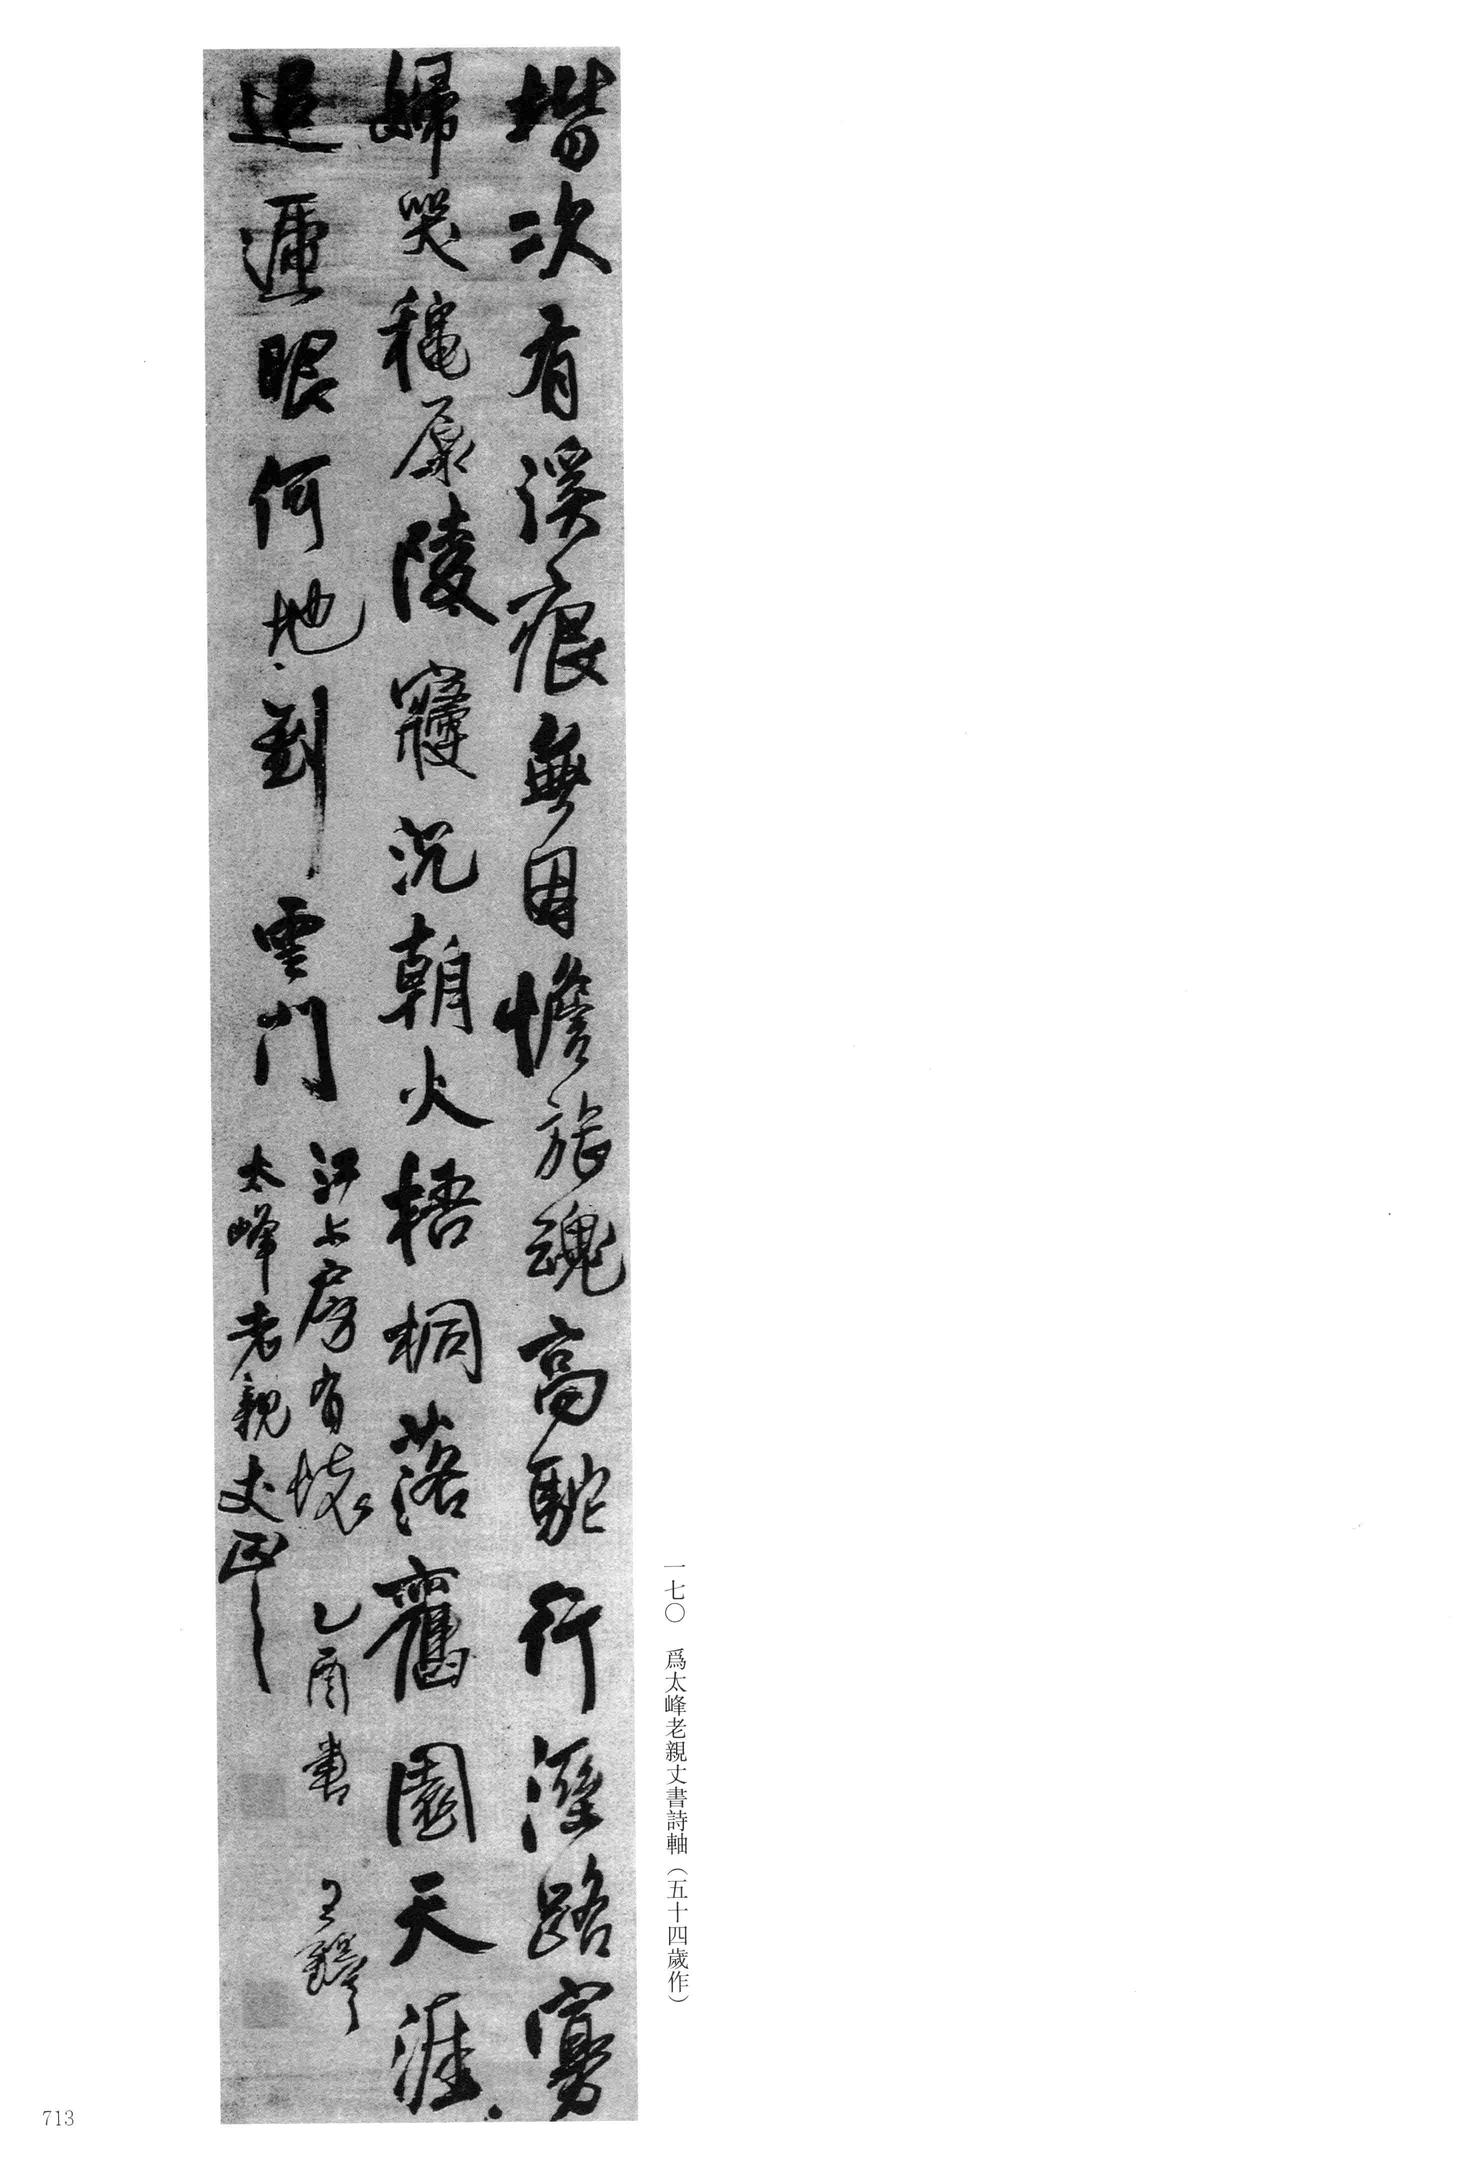 堦次有溪痕無用憺旅魂高駝行澀路寡
婦哭穐原陵寢沉朝火梧桐落舊園天涯
追遞眼何地到雲門
江上房有懷 乙酉書 王鐸
太峰老親丈正
一七〇 爲太峰老親丈書詩軸（五十四歲作）
713